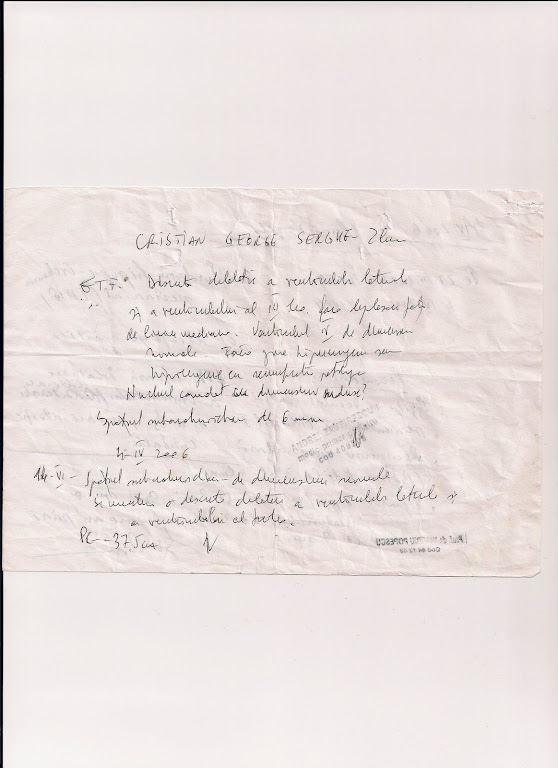 CRISTIAN GEORGE SERGHE - 2 luni
E.T.F. Discretă dilatație a ventriculilor laterali
și a ventriculului al III lea, fără deplasare față
de linia mediană. Ventriculul IV de dimensiuni
normale Fără zone hiperecogene sau
hipoecogene cu semnificație patologică
Nucleul caudat de dimensiuni reduse?
Spațiul subarahnoidian de 6 mm
IV 2006
14-VI - Spațiul subarahnoidian de dimensiuni normale
o discretă dilatație a ventriculilor laterali și
a ventriculului al treilea.
PC - 37,5 cm
POPESCU